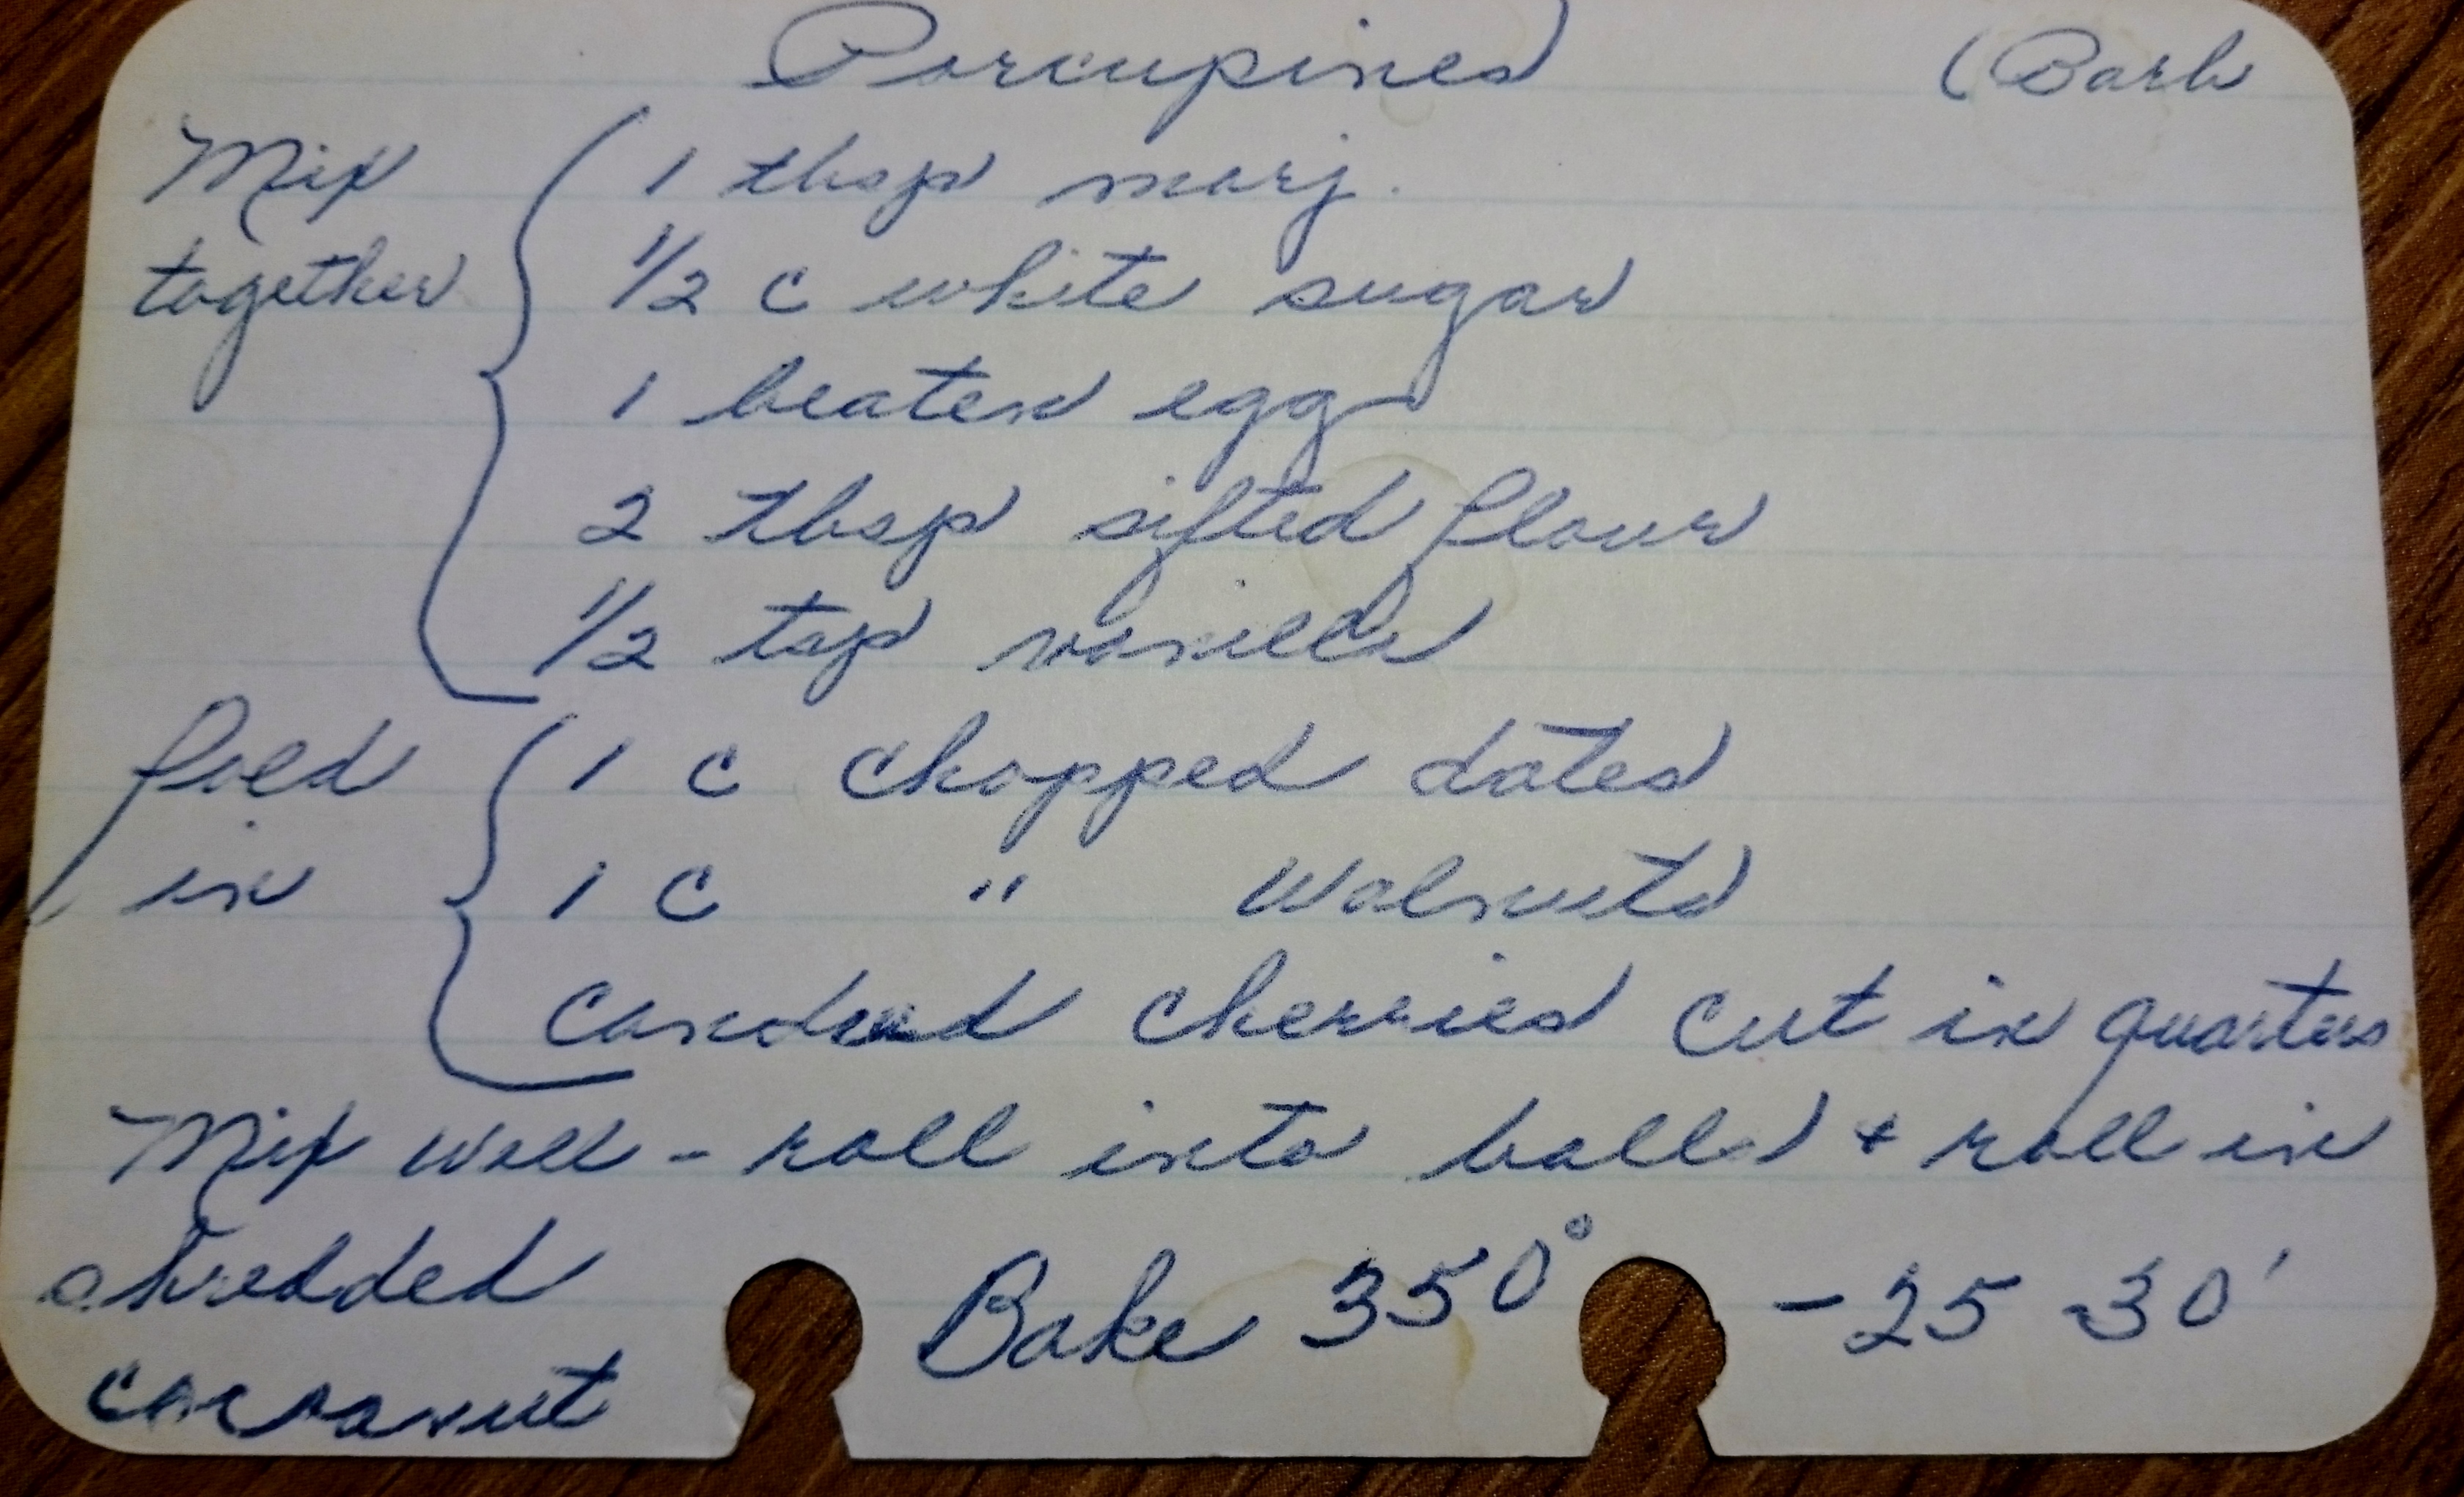 Porcupines (Barb
Mix together { 1 tbsp marj.
1/2 c white sugar
1 beaten egg
2 tbsp sifted flour
1/2 tsp vanilla
fold in { 1 c chopped dates
1 c " Walnuts
Candied cherries cut in quarters
Mix well - roll into balls + roll in
shredded Bake 350° - 25 - 30'
cocoanut